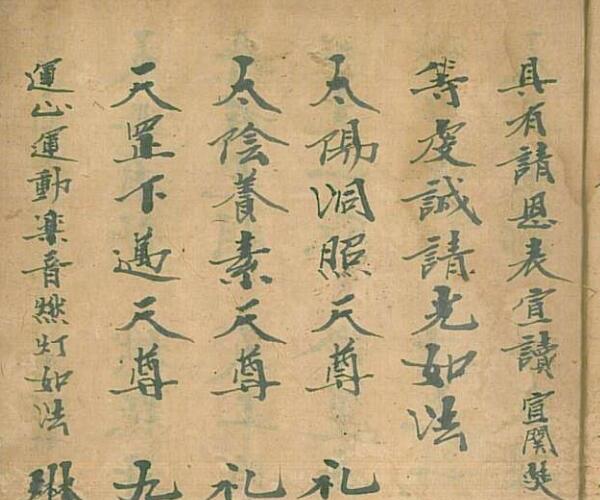 具有請恩表宣讀 宣関
等虔誠請光如法
太陽洞照天尊 礼
太陰養素天尊 礼
天罡下邁天尊 九
運山運動楽音燃灯如法 琳